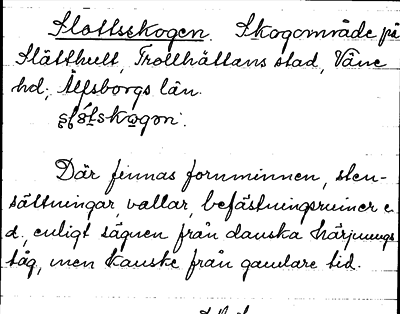 Slottsskogen. Skogområde på
Slätthult, Trollhättans stad, Väne
hd, Älfsborgs län.
Där finnas fornminnen, sten-
sättningar vallar, befästningsruiner e
d, enligt sägnen från danska härjnings
tåg, men kanske från gamlare tid.